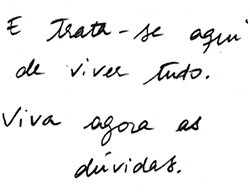 E trata-se aqui
de viver tudo.
Viva agora as
dúvidas.